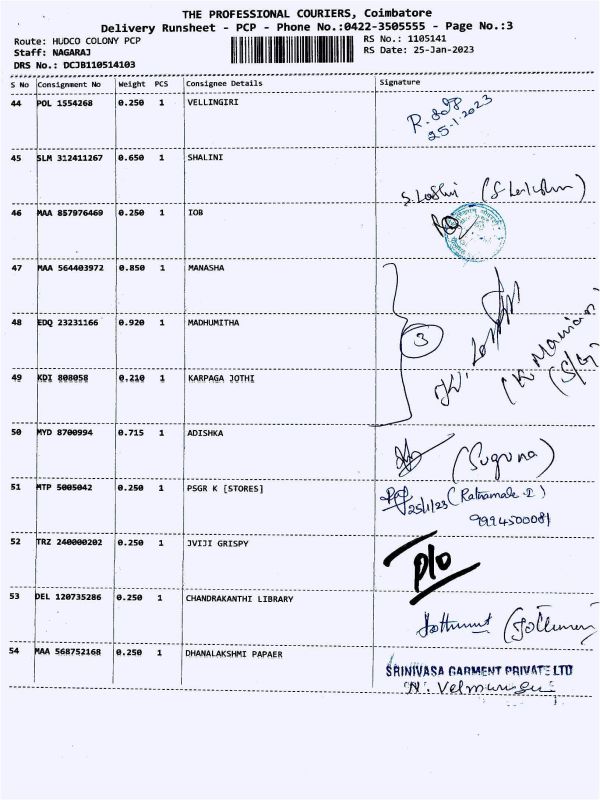 THE PROFESSIONAL COURIERS, Coimbatore
Delivery Runsheet - PCP - Phone No.:0422-3505555 - Page No.:3
Route: HUDCO COLONY PCP
Staff: NAGARAJ
DRS No.: DCJB110514103
RS No.: 1105141
RS Date: 25-Jan-2023
S No Consignment No Weight PCS Consignee Details Signature
44 POL 1554268 0.250 1 VELLINGIRI
25-1-2023
45 SLM 312411267 0.650 1 SHALINI
46 MAA 857976469 0.250 1 IOB
47 MAA 564403972 0.850 1 MANASHA
48 EDQ 23231166 0.920 1 MADHUMITHA
3
49 KDI 808058 0.210 1 KARPAGA JOTHI
50 MYD 8700994 0.715 1 ADISHKA
(Suguna)
51 MTP 5005042 0.250 1 PSGR K [STORES]
25/1/23 (Ratnamala.I)
9994500081
52 TRZ 240000202 0.250 1 JVIJI GRISPY
P/O
53 DEL 120735286 0.250 1 CHANDRAKANTHI LIBRARY
54 MAA 568752168 0.250 1 DHANALAKSHMI PAPAER
SRINIVASA GARMENT PRIVATE LTD
N. Velmurugan